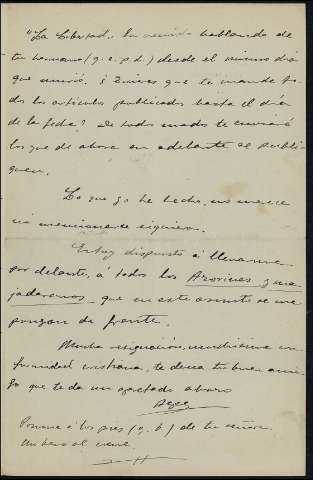 "La Libertad" ha venido hablando de
tu hermano (q. e. p. d.) desde el mismo dia
que murió. ¿Quieres que te mande to-
dos los artículos publicados hasta el dia
de la fecha? De todos modos te enviaré
los que de ahora en adelante se publi-
quen.
Lo que yo he hecho, no merece
ni mencionarse siquiera.
Estoy dispuesto á llevarme
por delante, á todos los y ma-
jaderanos que en este asunto se me
pongan de frente.
Mucha resignación, muchísima con-
formidad cristiana, te desea tu buen ami-
go que te da un apretado abrazo
Pepe
Ponme á los pies (q. b.) de tu señora.
Un beso al nene